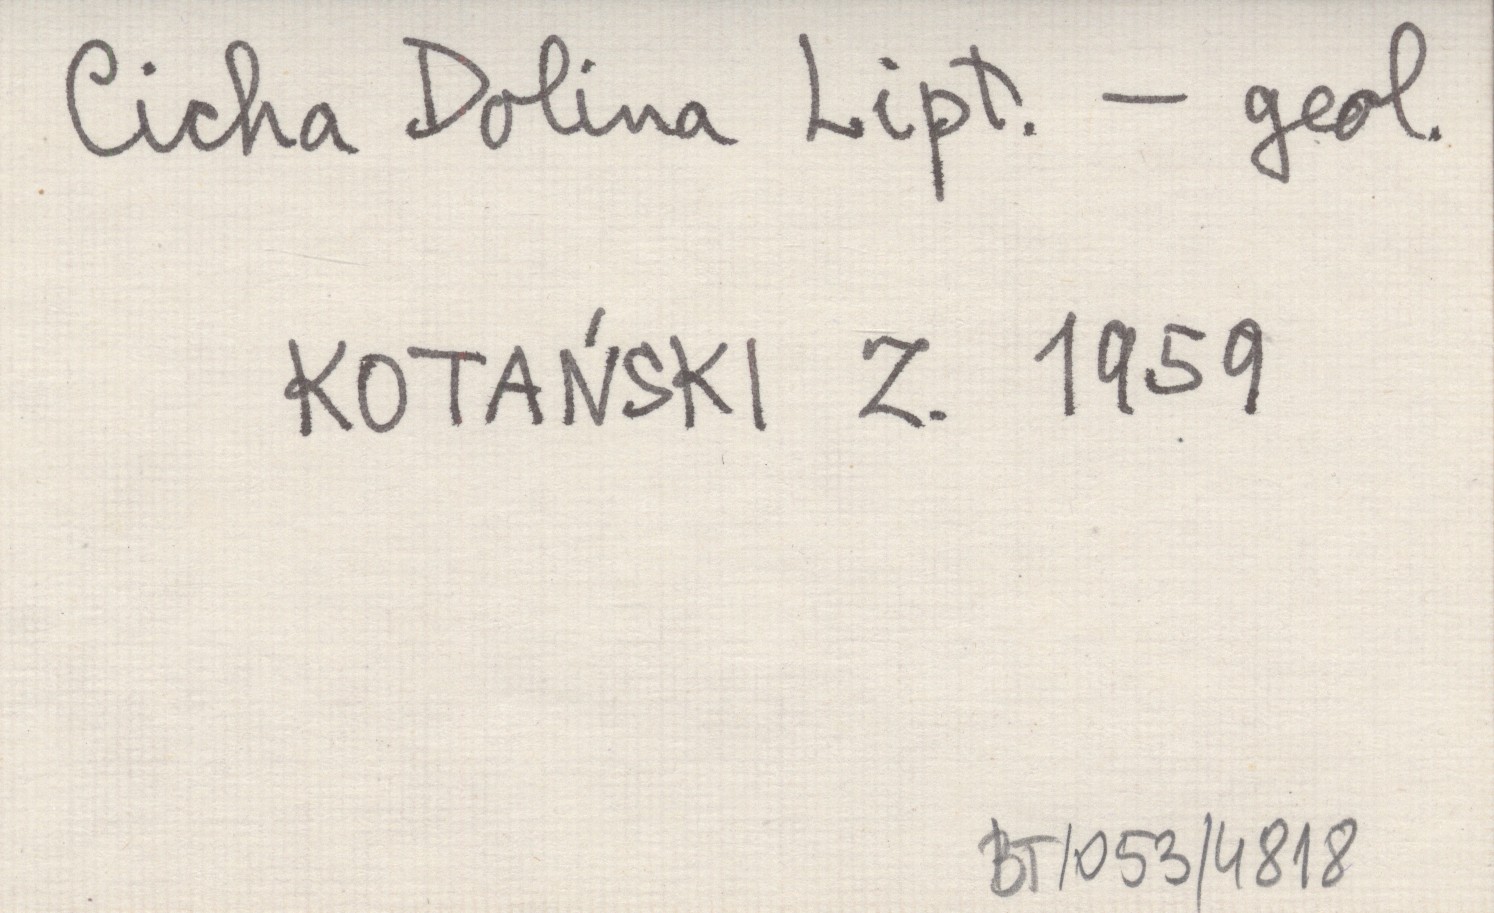 Cicha Dolina Lipt. — geol.
KOTAŃSKI Z. 1959
BT/053/4818